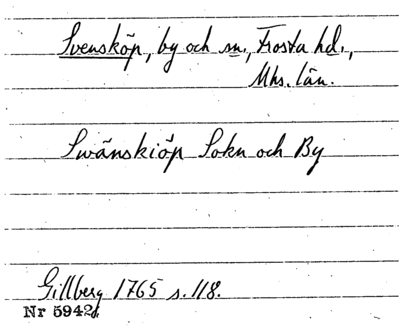 Svensköp, by och sn., Frosta hd.,
Mhs. län.
Swänskiöp Sokn och By
Gillberg 1765 s. 118.
Nr 5942